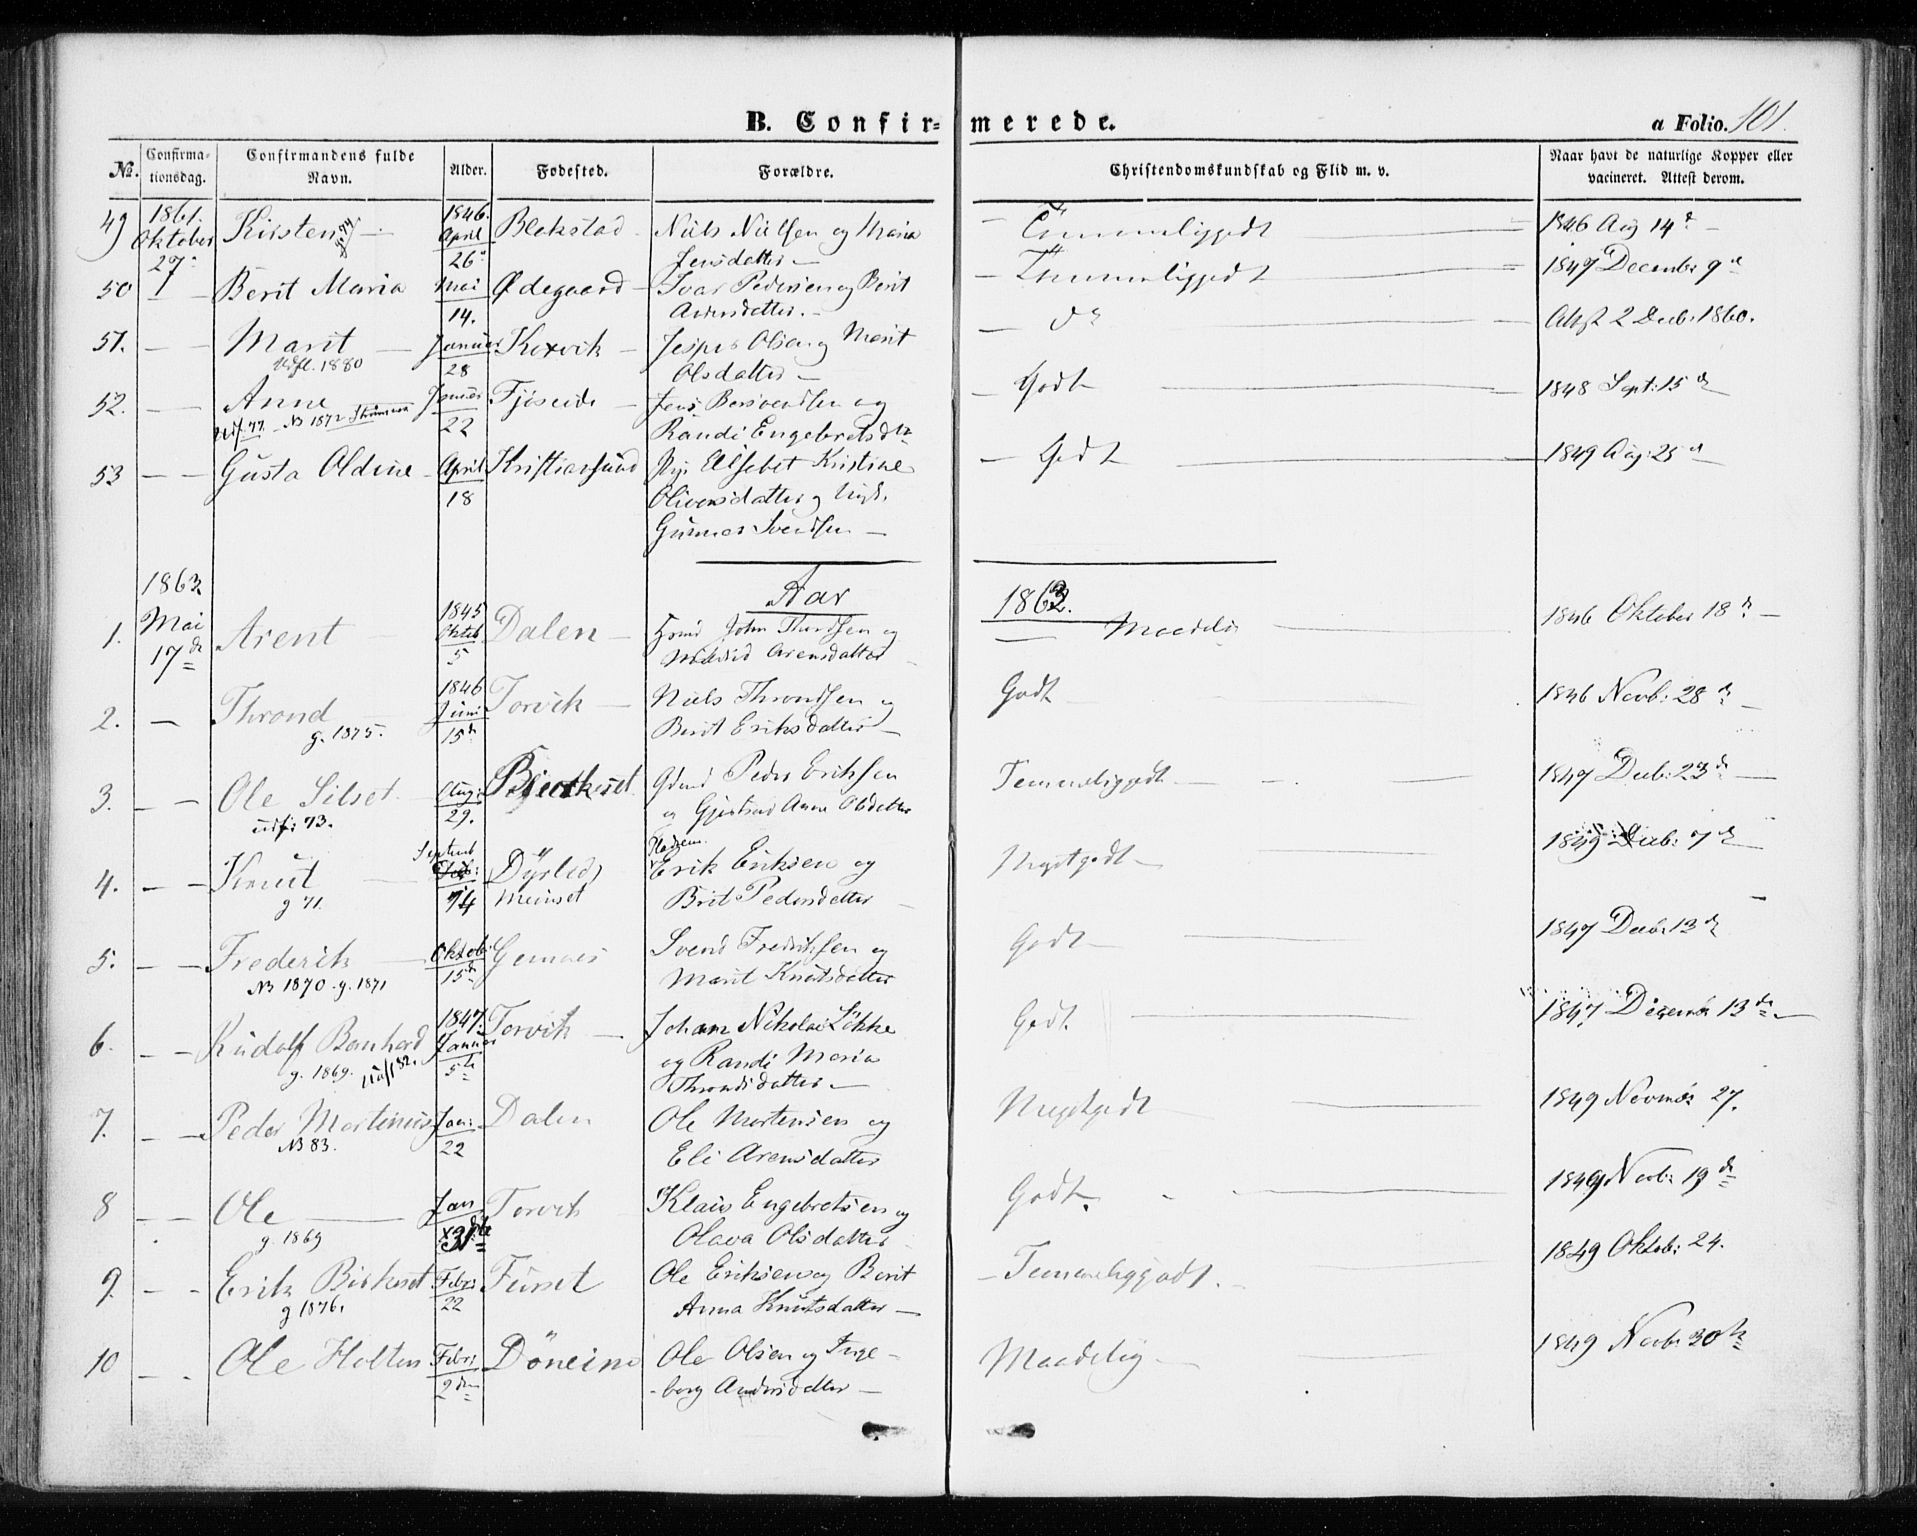 B. Confir= merede. a Folio. 101.
No. Confirma-tionsdag. Confirmandens fulde Navn. Alder. Fødested. Forældre. Christendomskundskab og Flid m. v. Naar havt de naturlige Kopper eller vacineret. Attest derom.
49 1861. Oktober 27 Kirsten 1846. April 26 Blekstad Niels Nielsen og Maria
Jensdatter — Temmeliggodt 1846 Aug 14
50 Berit Maria Mai 14. Ødegaard Ivar Pedersen og Berit
Andersdatter. Temmeliggodt 1847 Decembr 9
51. Marit Januar 28 Korvik Jesper Olsen og Marit
Udfl. 1880 Olsdatter — do Attest 2 Decb: 1860.
52. Anne Januar 22 Fjøseide Jens Bersvendsen og
Udf. 77. NB 1872 Randi Engebretsdtr Godt 1848 Sept: 15
53 Gusta Oldine April 18 Kristiansund Elsebet Kristine
Oliversdatter og
Gunner Svendsen — Godt 1849 Aug: 25
Aar 1863.
1. 1863 Mai 17de Arent 1845 Oktob 5 Dalen John Thordsen og
Arensdatter Maadelig 1846 Oktober 18
2. Thrond 1846 Juni 15 Torvik Niels Throndsen og
g. 1875. Berit Eriksdatter Godt 1846 Novb: 28
3. Ole Silset Aug: 29. Gdmd Peder Eriksen
udf: 73. og Gjertrud Anna Olsdatter Temmeliggodt 1847 Decb: 23
4. Knut Septemb 14 Erik Eriksen og
g 71. Meisset Brit Pedersdatter Megetgodt 1849 Decb: 7
5. Frederik Oktob: 15 Gimnes Svend Fredriksen og
NB 1870 g. 1871 Marit Knutsdatter Godt 1847 Decb: 13
6. Rudolf Bernhard 1847. Januar 5 Torvik Johan Nikolai Lökke
g. 1869. Udfl 82. og Randi Maria
Throndsdatter — Godt. 1847 Desemb 13
7. Peder Martinus Jan: 22 Dalen Ole Mortensen og
NB 83. Eli Arensdatter Megetgodt 1849 Novmbr 27.
8 Ole Jan 31 Torvik Klaus Engebretsen og
g. 1869 Olava Olsdatter Godt. 1849 Novb: 19
9. Erik Birkeset Febr: 22 Furset Ole Eriksen og Berit
g 1876. Anna Knutsdatter — Temmeliggodt. 1849 Oktob: 24.
10 Ole Holten Febr: 2den Döneim Ole Olsen og Inge-
-borg Andersdatter — Maadelig 1849 Novb: 30